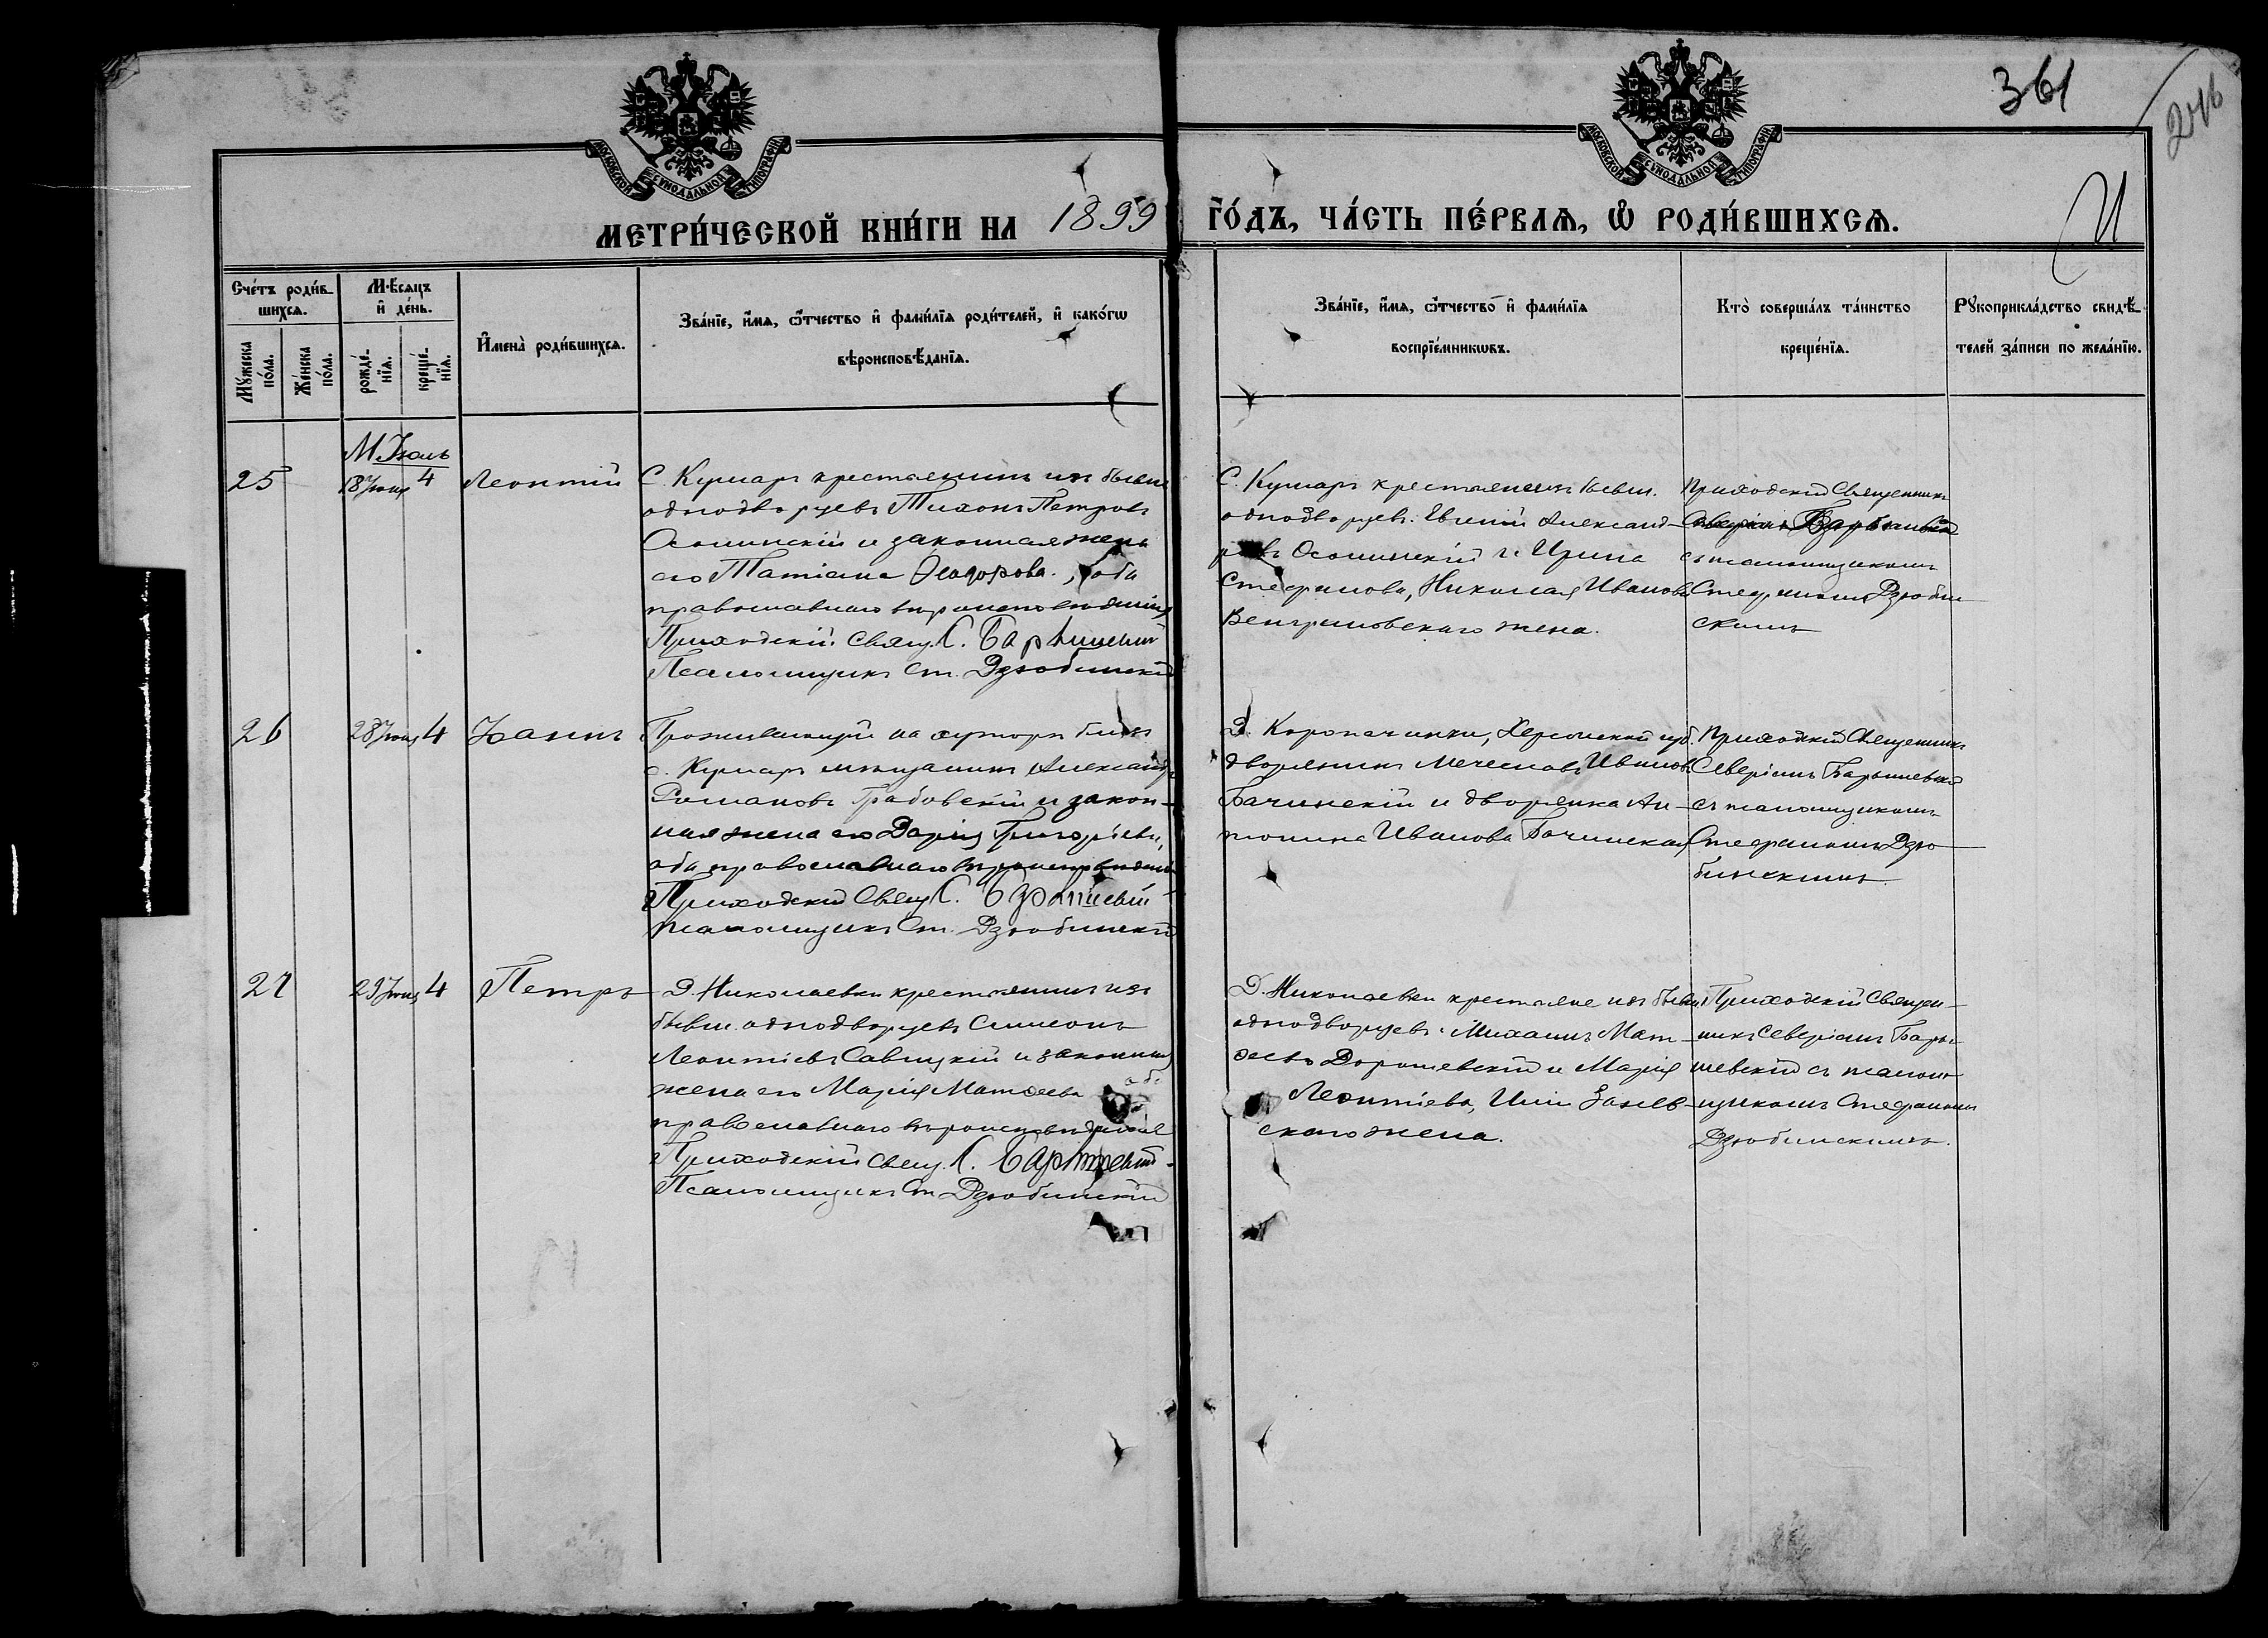 361
246
МОСКОВСКОЙ СУНОДАЛЬНОЙ ТИПОГРАФІИ
МОСКОВСКОЙ СУНОДАЛЬНОЙ ТИПОГРАФІИ
МЕТРИ́ЧЕСКОЙ КНИ́ГИ НА 1899 ГО́ДЪ, ЧА́СТЬ ПЕ́РВАѦ, Ѡ РОДИ́ВШИХСѦ.
И
Сче́тъ роди́в-
шихсѧ.
Мꙋжеска
по́ла.
Же́нска
по́ла.
Мѣ́сѧцъ
и҆ де́нь.
рожде́-
нїѧ.
креще́-
нїѧ.
И҆мена̀ роди́вшихсѧ.
Зва́нїе, и҆́мѧ, ѻ҆́тчество и҆ фами́лїѧ роди́телей, и҆ како́гѡ
вѣроисповѣ́данїѧ.
Зва́нїе, и҆́мѧ, ѻ҆́тчество и҆ фами́лїѧ
воспрїе́мникѡвъ.
Кто̀ соверша́лъ та́инство
креще́нїѧ.
Рꙋкоприкла́дство свидѣ́-
телей за́писи по жела́нїю.
М. Іюль
25
18 Іюня
4
Леонтій
С. Кумаръ крестьянинъ изъ бывш.
однодворцевъ Тихонъ Петровъ
Осошинскій и законная жена
его Татіана Ѳеодорова, оба
православнаго вѣроисповѣданія
Приходскій Свящ. С. Барышевскій
Псаломщикъ Ст. Дзюбинскій
С. Кумаръ крестьянинъ бывш.
однодворцевъ Евгеній Александ-
ровъ Осошинскій и Ирина
Стефанова, Николая Иванова
Венгриновскаго жена.
Приходскій Священникъ
Северіанъ Барышевскій
съ псаломщикомъ
Стефаномъ Дзюбин-
скимъ
26
28 Іюня
4
Іоаннъ
Проживающій на хуторѣ близъ
с. Кумаръ мѣщанинъ Александръ
Романовъ Грабовскій и закон-
ная жена его Дарія Григорієва,
оба православнаго вѣроисповѣданія
Приходскій Свящ. С. Барышевскій
псаломщикъ Ст. Дзюбинскій
Херсонской губ.
дворянинъ Мечеславъ Ивановъ
Бачинскій и дворянка Ан-
тонина Иванова Бачинская
Приходскій Священникъ
Северіанъ Барышевскій
съ псаломщикомъ
Стефаномъ Дзю-
бинскимъ.
27
29 Іюня
4
Петръ
Д. Николаевки крестьянинъ изъ
бывш. однодворцевъ Симеонъ
Леонтіевъ Савицкій и законная
жена его Марія Матѳеева оба
православнаго вѣроисповѣданія
Приходскій Свящ. С. Барышевскій
Псаломщикъ Ст. Дзюбинскій
Д. Николаевки крестьяне изъ бывш.
однодворцевъ: Михаилъ Мат-
ѳеевъ Дорошевскій и Марія
Леонтіева,
скаго жена.
Приходскій Священ-
никъ Северіанъ Бары-
шевскій съ псалом-
щикомъ Стефаномъ
Дзюбинскимъ.